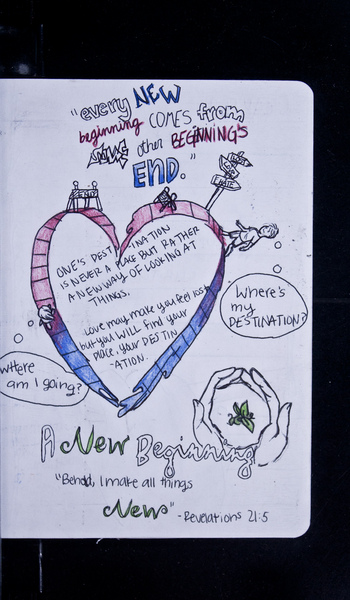 "every NEW
beginning COMES from
SOME other BEGINNING'S
END."
ONE'S DESTINATION
IS NEVER A PLACE BUT RATHER
A NEW WAY OF LOOKING AT
THINGS.
Love may make you feel lost
but you WILL find your
place, your DESTIN
-ATION.
Where's
my
DESTINATION?
where
am I going?
A New Beginning
"Behold, I make all things
New"
-Revelations 21:5